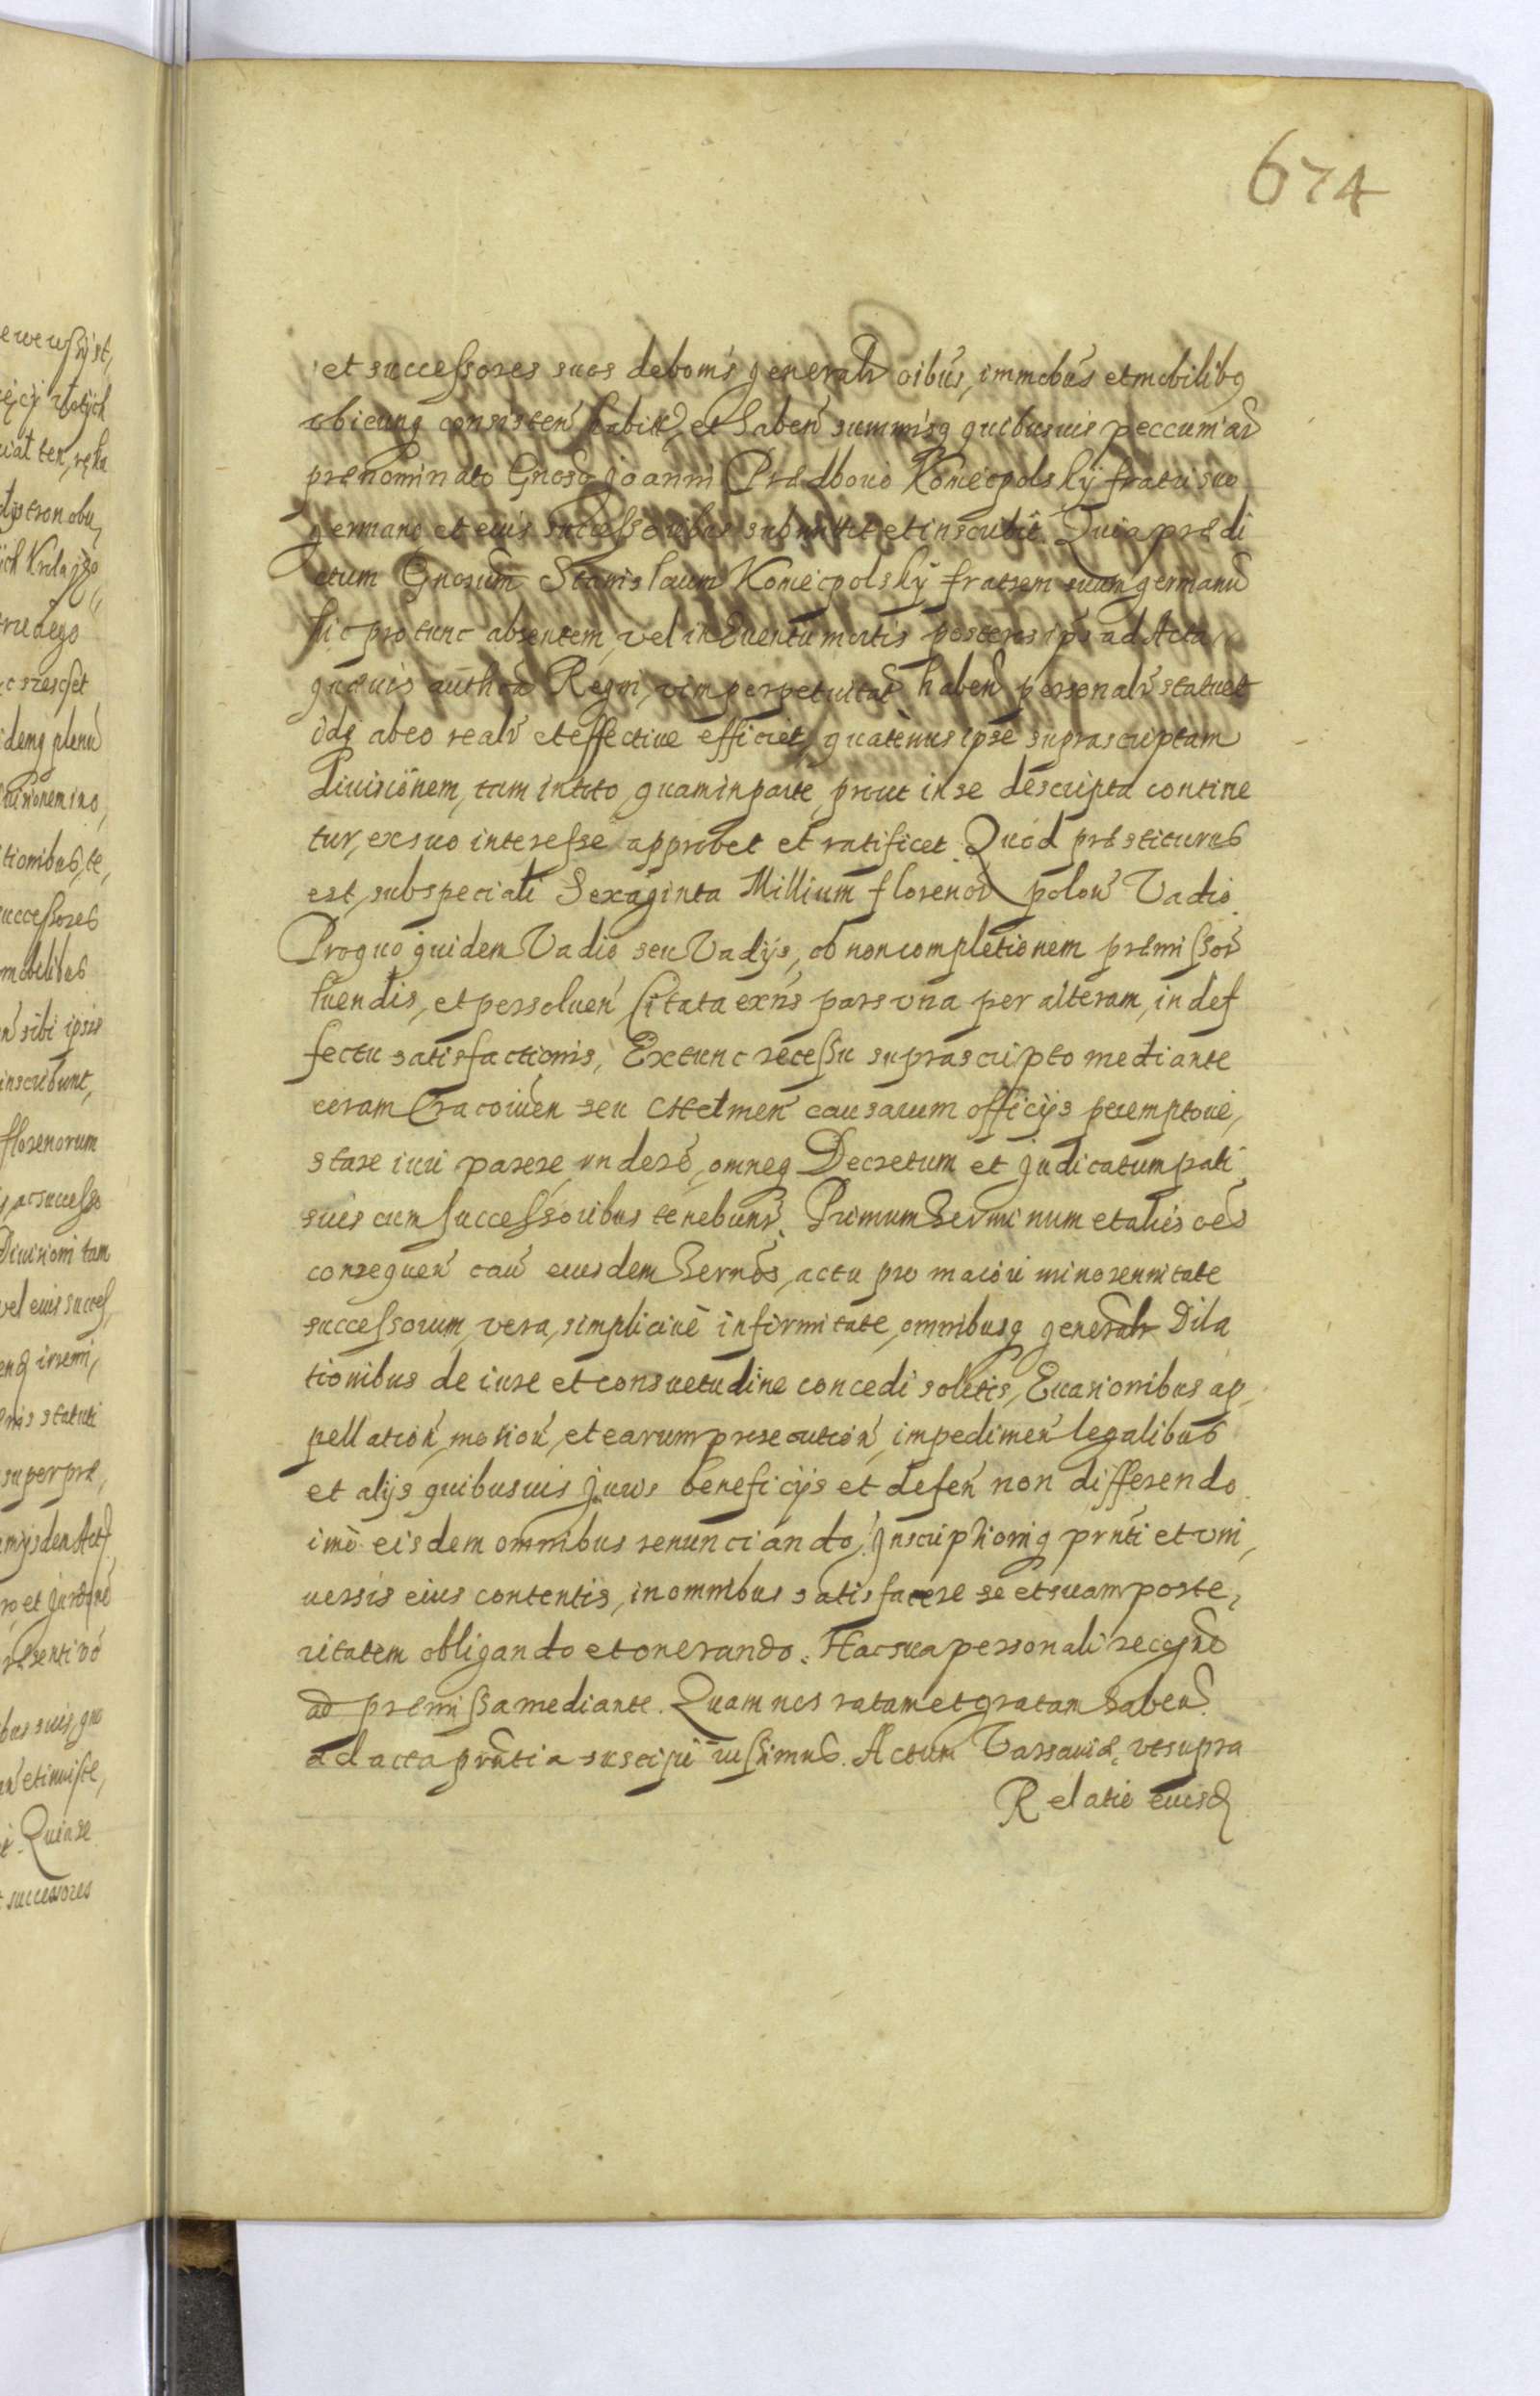 674
et successores suos de bonis generalr oibus, immobus et mobilibq
vbicunq consisten habitt, et haben summisq quibusuis peccuniar
prænominato Gnoso Joanni Prædbouo Koniecpolskÿ fratri suo
germano et eius successoribus submittit et inscribit. Quia prædi
ctum Gnosum Stanislaum Koniecpolskÿ fratrem suum germanu
hic pro tunc absentem, vel in Euentu mortis posteros ips ad Acta
quæuis authen Regni, vim perpetuitat haben personalr statuet
idq ab eo realr et effectiue efficiet, quatenus ipse suprascriptam
Diuisionem, tam in toto, quam in parte, prout in se descripta contine
tur, ex suo interesse approbet et ratificet. Quod præstiturus
est, sub speciali Sexaginta Millium florenor polon Vadio
Pro quo quidem Vadio seu Vadijs, ob non completionem præmissor
luendis, et persoluen citata exns pars vna per alteram, in def
fectu satisfactionis, Extunc recessu suprascripto mediante
coram Cracouien seu Chelmen causarum officijs peremptorie,
stare iuri parere, vndere, omneq Decretum et Judicatum pati,
suis cum successoribus tenebunr. Primum Terminum et alios oes
consequen cau eiusdem Ternos, actu pro maiori minorennitate
successorum, vera, simpliciue infirmitate, omnibusq generalr Dila
tionibus de iure et consuetudine concedi solitis, Euasionibus ap,
pellation, motion, et earum prosecution, impedimen legalibus
et alijs quibusuis Juris beneficijs et defen non differendo
imo eisdem omnibus renunciando, Inscriptioniq prnti et vni,
uersis eius contentis, in omnibus satisfacere se et suam poste,
ritatem obligando et onerando. Hac sua personali recogne
ad præmissa mediante. Quam nos ratam et gratam haben
ad acta prntia suscipi iussimus. Actum Varsauiæ, vt supra
Relatio eiusd